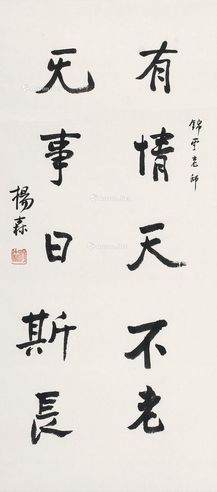 錦雲老師
有情天不老
无事日斯長
楊森